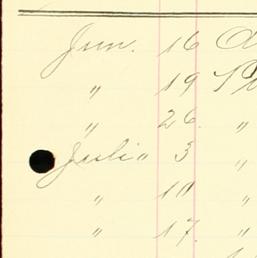 Jun. 16
" 19
" 26. "
Juli " 3 "
" 10 "
" 17. "